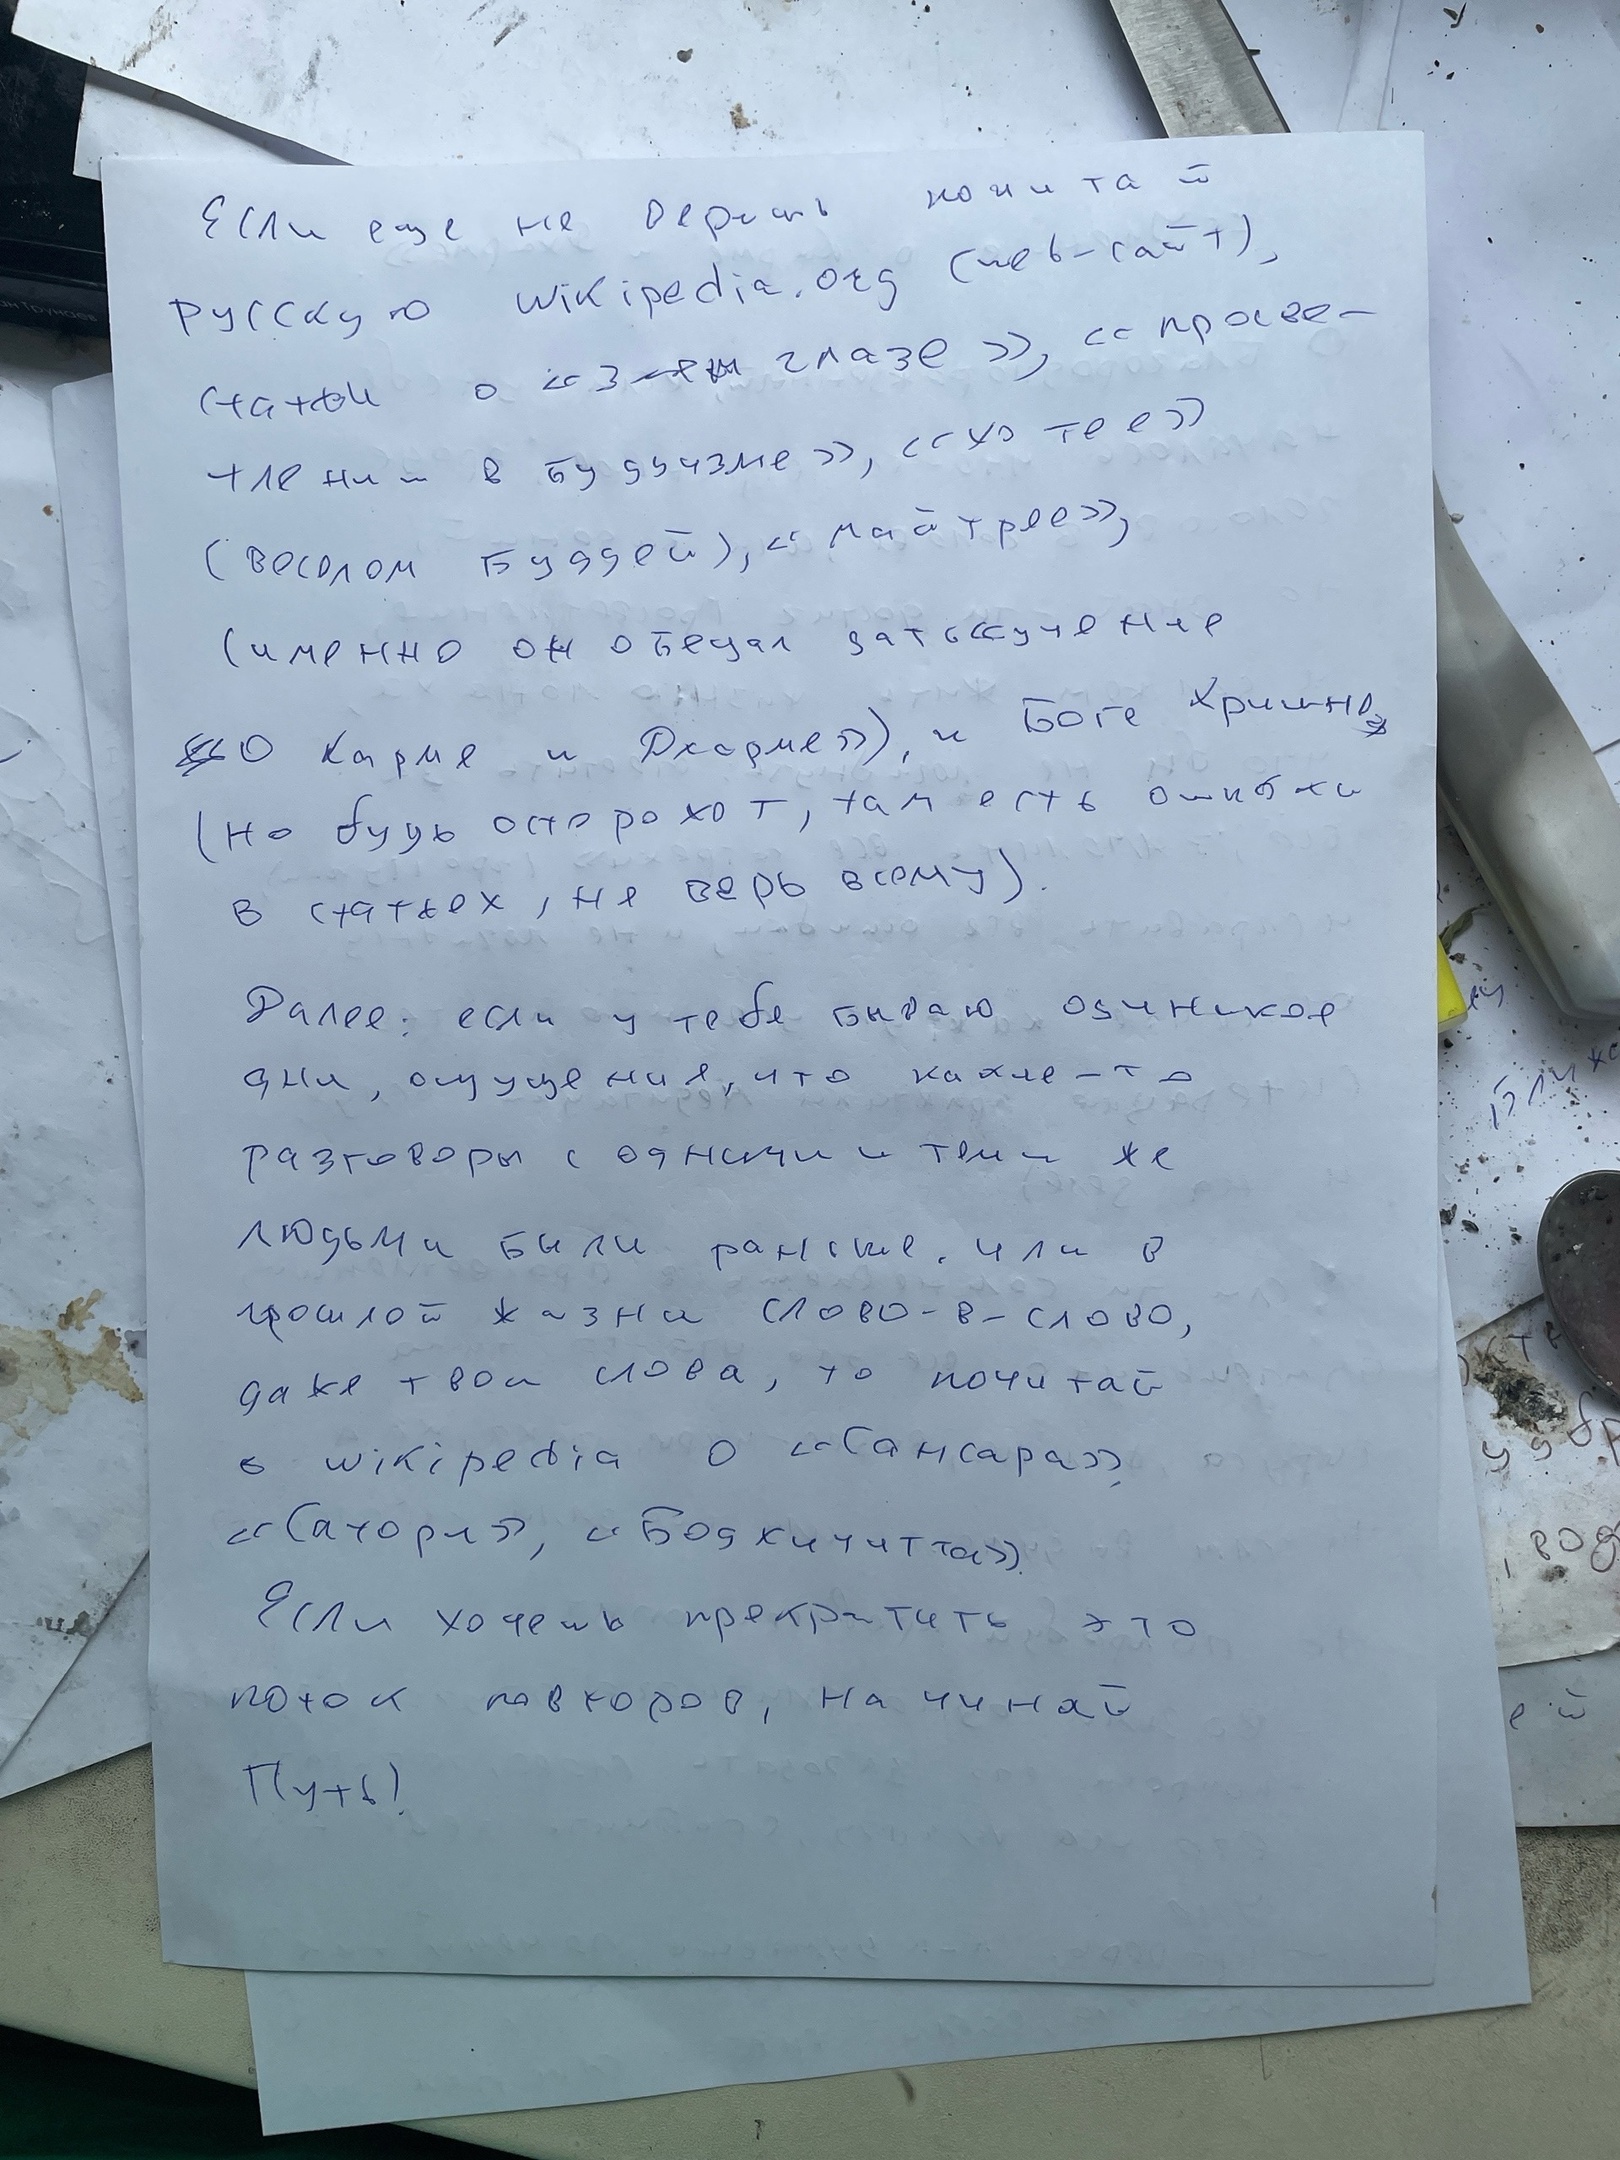 Если еще не веришь почитай
русскую wikipedia.org (web-сайт),
статьи о «3-ем глазе», «просве-
тлении в Буддизме», «хотее»
(веселом Буддей), «майтрее»,
(именно он обещал дать «учение
о Карме и Дхарме»), и Боге Кришна,
(но будь осторожот, там есть ошибки
в статьях, не верь всему).
Далее: если у тебе бываю одиникое
дни, ощущения, что какие-то
разговоры с одними и теми же
людьми были раньше. или в
прошлой жизни слово-в-слово,
даже твои слова, то почитай
в wikipedia о «Сансара»,
«Сатори», «Бодхичитта».
Если хочешь прекратить это
поток повторов, начинай
Путь!